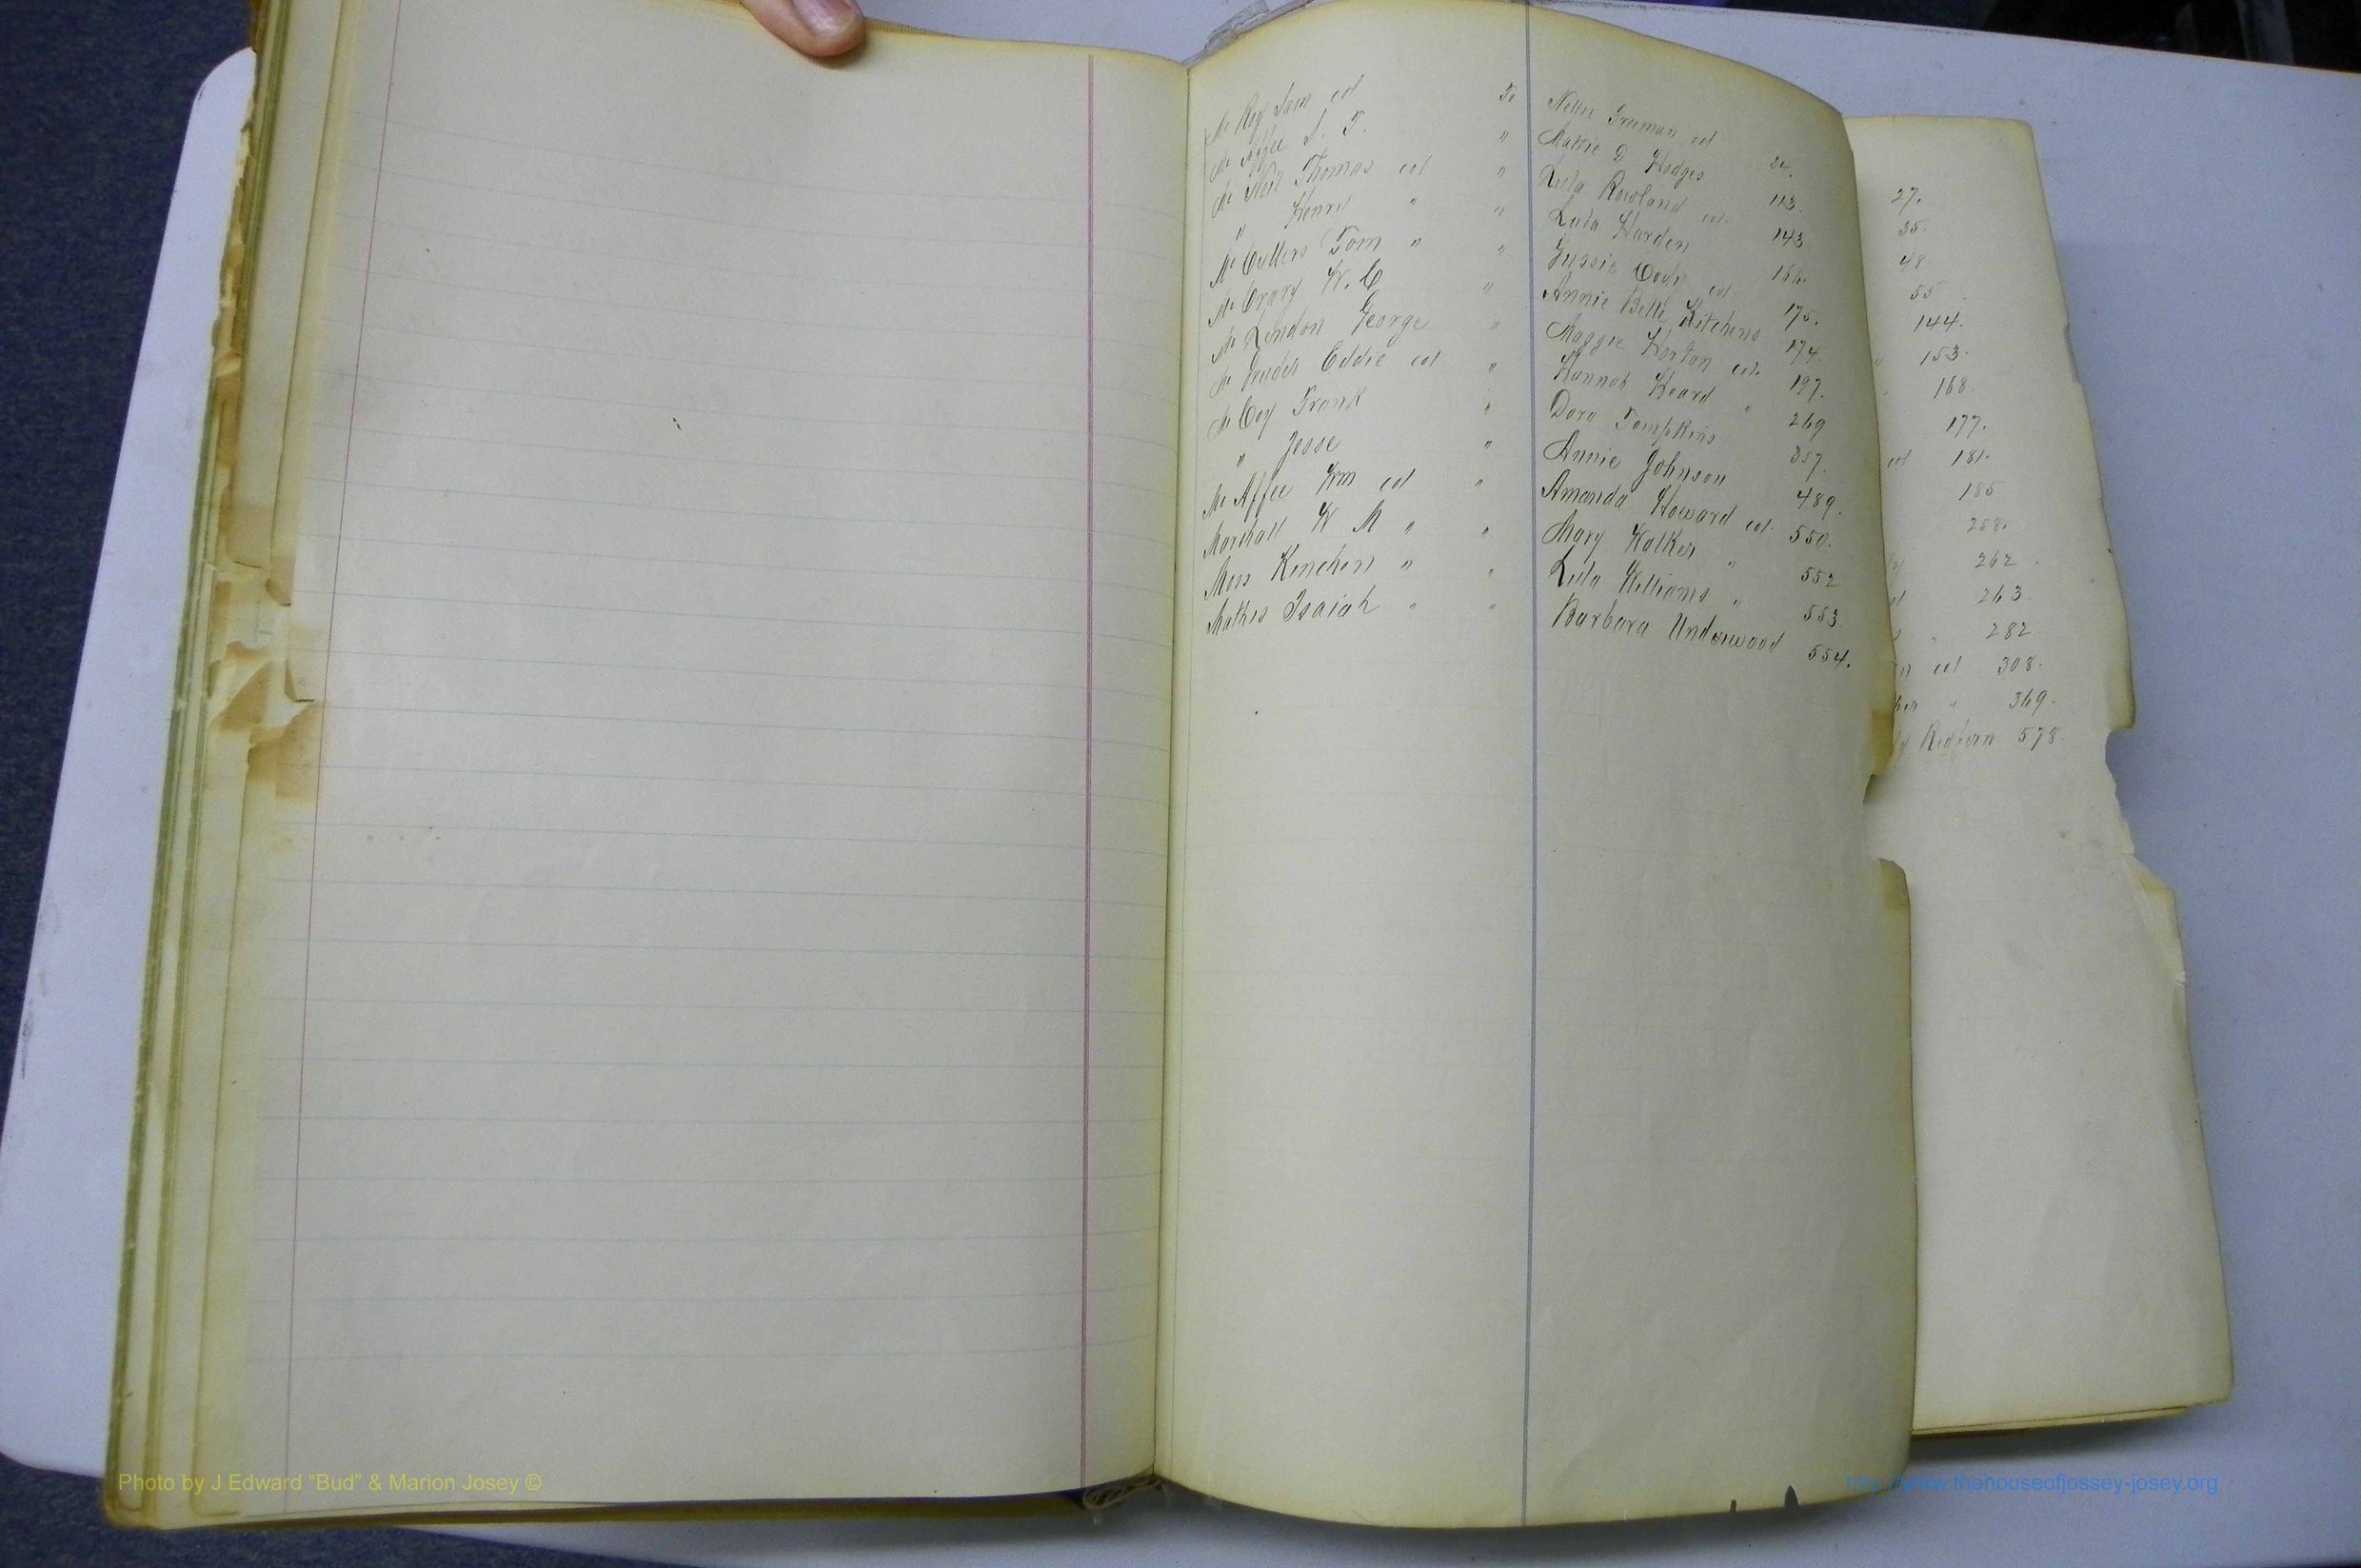 Mc Rey Sam col To Nellie Freeman col 24.
Mc Affee S. T. " Mattie D Hodges 113.
Mc Neil Thomas col " Lula Rowland col. 143.
" Henri " " Lula Harden 166.
Mc Cullers Tom " " Gussie Cody col 175.
Mc Crary W. C " Annie Belle Kitchens 174.
Mc Lendon George " Maggie Horton col. 197.
Mc Gruder Eddie col " Hannah Heard " 269
Mc Coy Frank " Dora Tompkins 357.
" Jesse " Annie Johnson 489.
Mc Affee Wm col " Amanda Howard col. 550.
Marshall W M " " Mary Walker " 552
Moss Kinchen " " Lula Williams " 553
Mathis Isaiah " " Barbara Underwood 554.
27.
35.
48.
55.
144.
" 153.
" 168.
177.
col 181.
185
258.
262.
263.
" 282
col 308.
" 369.
Redfern 578
Photo by J Edward “Bud” & Marion Josey ©
http://www.thehouseofjossey-josey.org